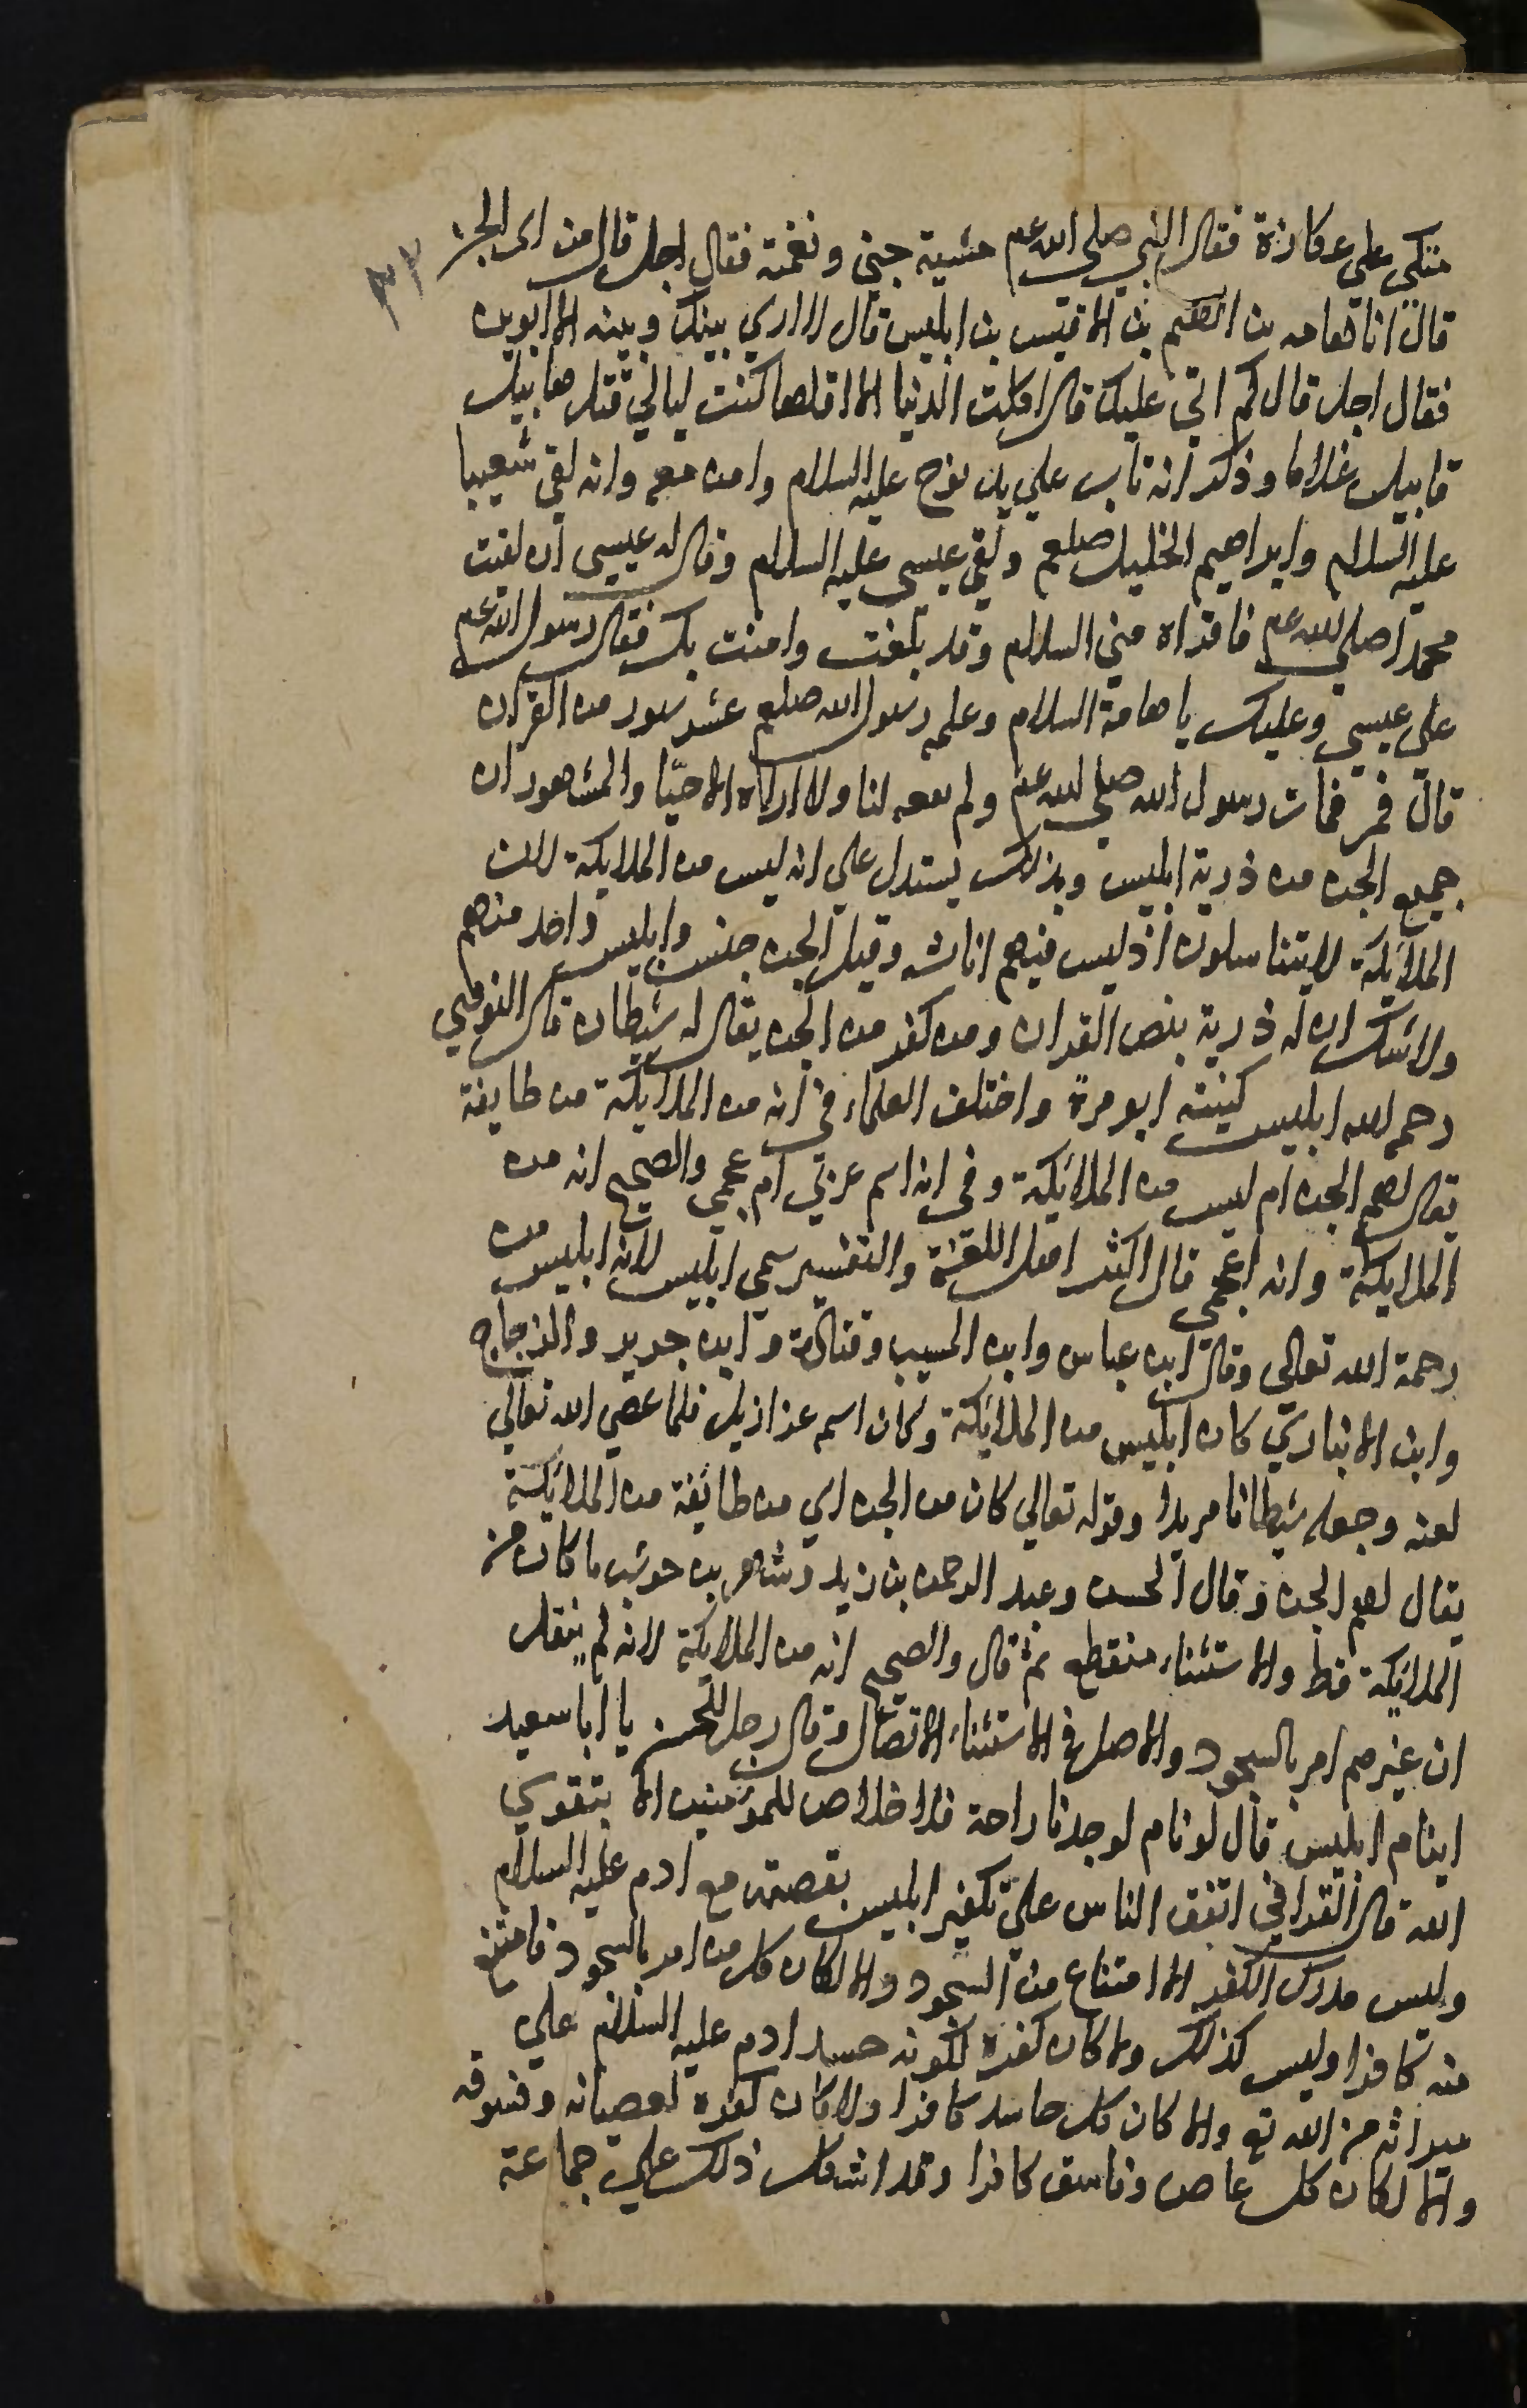 متكئ على عكازة فقال النبي صلى الله عم مشية جني ونغمته فقال اجل قال من اى الجن
٣٢
قال انا هامه بن الهيم بن الاقيس بن ابليس قال لا اري بينك وبينه الا ابوين
فقال اجل قال كم اتى عليك قال اكلت الدنيا الا اقلها كنت ليالي قتل هابيل
قابيل غلاما وذكر انه تاب علي يد نوح عليه السلام وامن معه وانه لقي شعيبا
عليه السلام وابراهيم الخليل صلعم ولقي عيسى عليه السلام وقال له عيسى ان لقيت
محمدا صلى الله عم فاقراه مني السلام وقد بلغت وامنت بك فقال رسول الله عم
على عيسى وعليك يا هامة السلام وعلمه رسول الله صلعم عشر سور من القران
قال فمر فمات رسول الله صلى الله عم ولم ينعه لنا ولا اراه الا حيّا والمشهور ان
جميع الجن من ذرية ابليس وبذلك يستدل على انه ليس من الملايكة لان
الملائكة لا يتناسلون اذ ليس فيهم اناث وقيل الجن جنس وابليس واحد منهم
ولا شك ان له ذرية بنص القران ومن كفر من الجن يقال له شيطان قال النووي
رحمه الله ابليس كنيته ابو مرة واختلف العلماء في انه من الملايكة من طايفة
يقال لهم الجن ام ليس من الملائكة وفي انه اسم عربي ام عجمي والصحيح انه من
الملايكة وانه اعجمي قال اكثر اهل اللغة والتفسير سمي ابليس لانه ابليس من
رحمة الله تعالى وقال ابن عباس وابن المسيب وقتادة وابن جرير والزجاج
وابن الانباري كان ابليس من الملائكة وكان اسمه عزازيل فلما عصي الله تعالي
لعنه وجعله شيطانا مريدا وقوله تعالي كان من الجن اي من طائفة من الملائكة
يقال لهم الجن وقال الحسن وعبد الرحمن بن زيد وشهر بن حوشب ما كان من
الملائكة قط والاستثناء منقطع ثم قال والصحيح انه من الملايكة لانه لم ينقل
ان غيرهم امر بالسجود والاصل في الاستثناء الاتصال وقال رجل للحسن يا ابا سعيد
اينام ابليس قال لو نام لوجدنا راحة فلا خلاص للمؤمنين الا بتقوي
الله قال القرافي اتفق الناس علي تكفير ابليس بقصته مع ادم عليه السلام
وليس مدرك الكفر الا امتناع من السجود والا لكان كل من امر بالسجود فامتنع
منه كافرا وليس كذلك ولا كان كفره لكونه حسد ادم عليه السلام علي
ميراثه من الله تع والا كان كل حاسد كافرا ولا كان كفره لعصيانه وفسوقه
والا لكان كل عاص وفاسق كافرا وقد اشكل ذلك علي جماعة